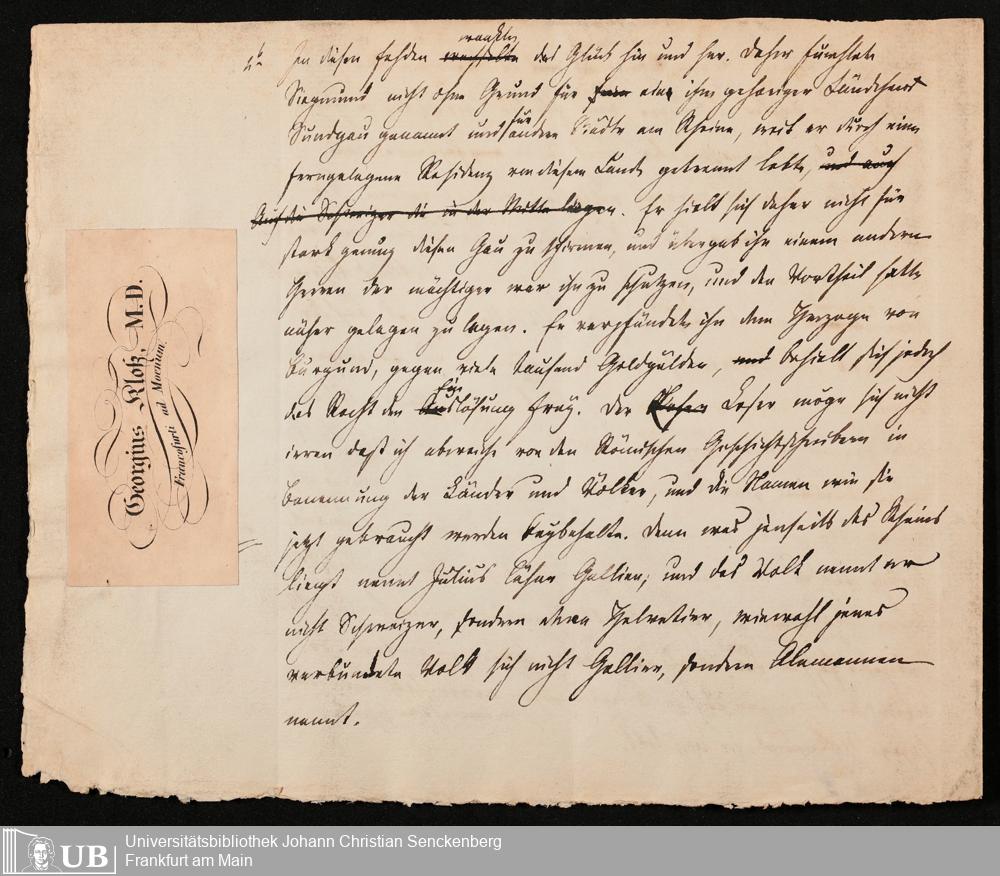 wankte
In diesen Fehden wechselte das Glück hin und her. Daher furchtete
Siegmund nicht ohne Grund für sein ein ihm gehöriger Ländchen
Sundgau genannt und für andere Städte am Rheine, weil er durch eine
ferngelegene Residenz von diesem Lande getrennt lebte, und auch
Auch die Schweizer die in der Mitte lagen. Er hielt sich daher nicht für
stark genug diesen Gau zu schirmen, und übergab ihn einem andern
Herren der mächtiger war ihn zu schützen, und den Vortheil hatte
näher gelegen zu liegen. Er verpfändete ihn dem Herzoge von
Burgund, gegen viele tausend Goldgülden, und behielt sich jedoch
das Recht den Auslösung frey. Der Leser möge sich nicht
irren daß ich abweiche von den Römischen Geschichtschreibern in
Benennung der Länder und Völker, und die Namen wie sie
jezt gebraucht werden beybehalte. Denn was jenseits des Rheins
liegt nennt Julius Cäsar Gallien, und das Volk nennt er
nicht Schweizer, sondern etwa Helvetier, wiewohl jenes
verbundete Volk sich nicht Gallier, sondern Alemannen
nennt.
Georgius Kloß, M.D.
Francofurti ad Moenum.
UB
Universitätsbibliothek Johann Christian Senckenberg
Frankfurt am Main